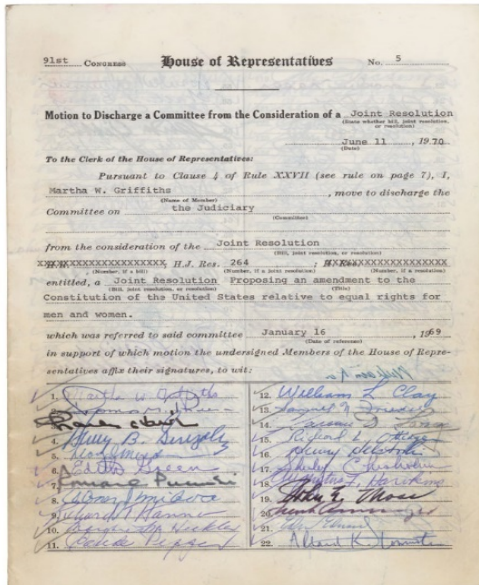 91st CONGRESS House of Representatives No. 5
Motion to Discharge a Committee from the Consideration of a Joint Resolution
(State whether bill, joint resolution, or resolution)
June 11, 1970
(Date)
To the Clerk of the House of Representatives:
Pursuant to Clause 4 of Rule XXVII (see rule on page 7), I,
Martha W. Griffiths, move to discharge the
(Name of Member)
Committee on the Judiciary
(Committee)
from the consideration of the Joint Resolution
(Bill, joint resolution, or resolution)
H.J. Res. 264;
(Number, if a bill) (Number, if a joint resolution) (Number, if a resolution)
entitled, a Joint Resolution Proposing an amendment to the
(Bill, joint resolution, or resolution) (Title)
Constitution of the United States relative to equal rights for
men and women.
which was referred to said committee January 16 1969
(Date of reference)
in support of which motion the undersigned Members of the House of Repre-
sentatives affix their signatures, to wit:
1. Martha W. Griffiths
4. Henry B. Gonzalez
5.
6. Edith Green
7. Roman C. Pucinski
8.
9. Richard T. Hanna
10.
11. Claude Pepper
12. William L. Clay
13.
14.
15. Richard L. Ottinger
16. Henry Helstoski
17. Shirley Chisholm
18. Augustus F. Hawkins
19. John E. Moss
20. Frank Annunzio
21.
22.